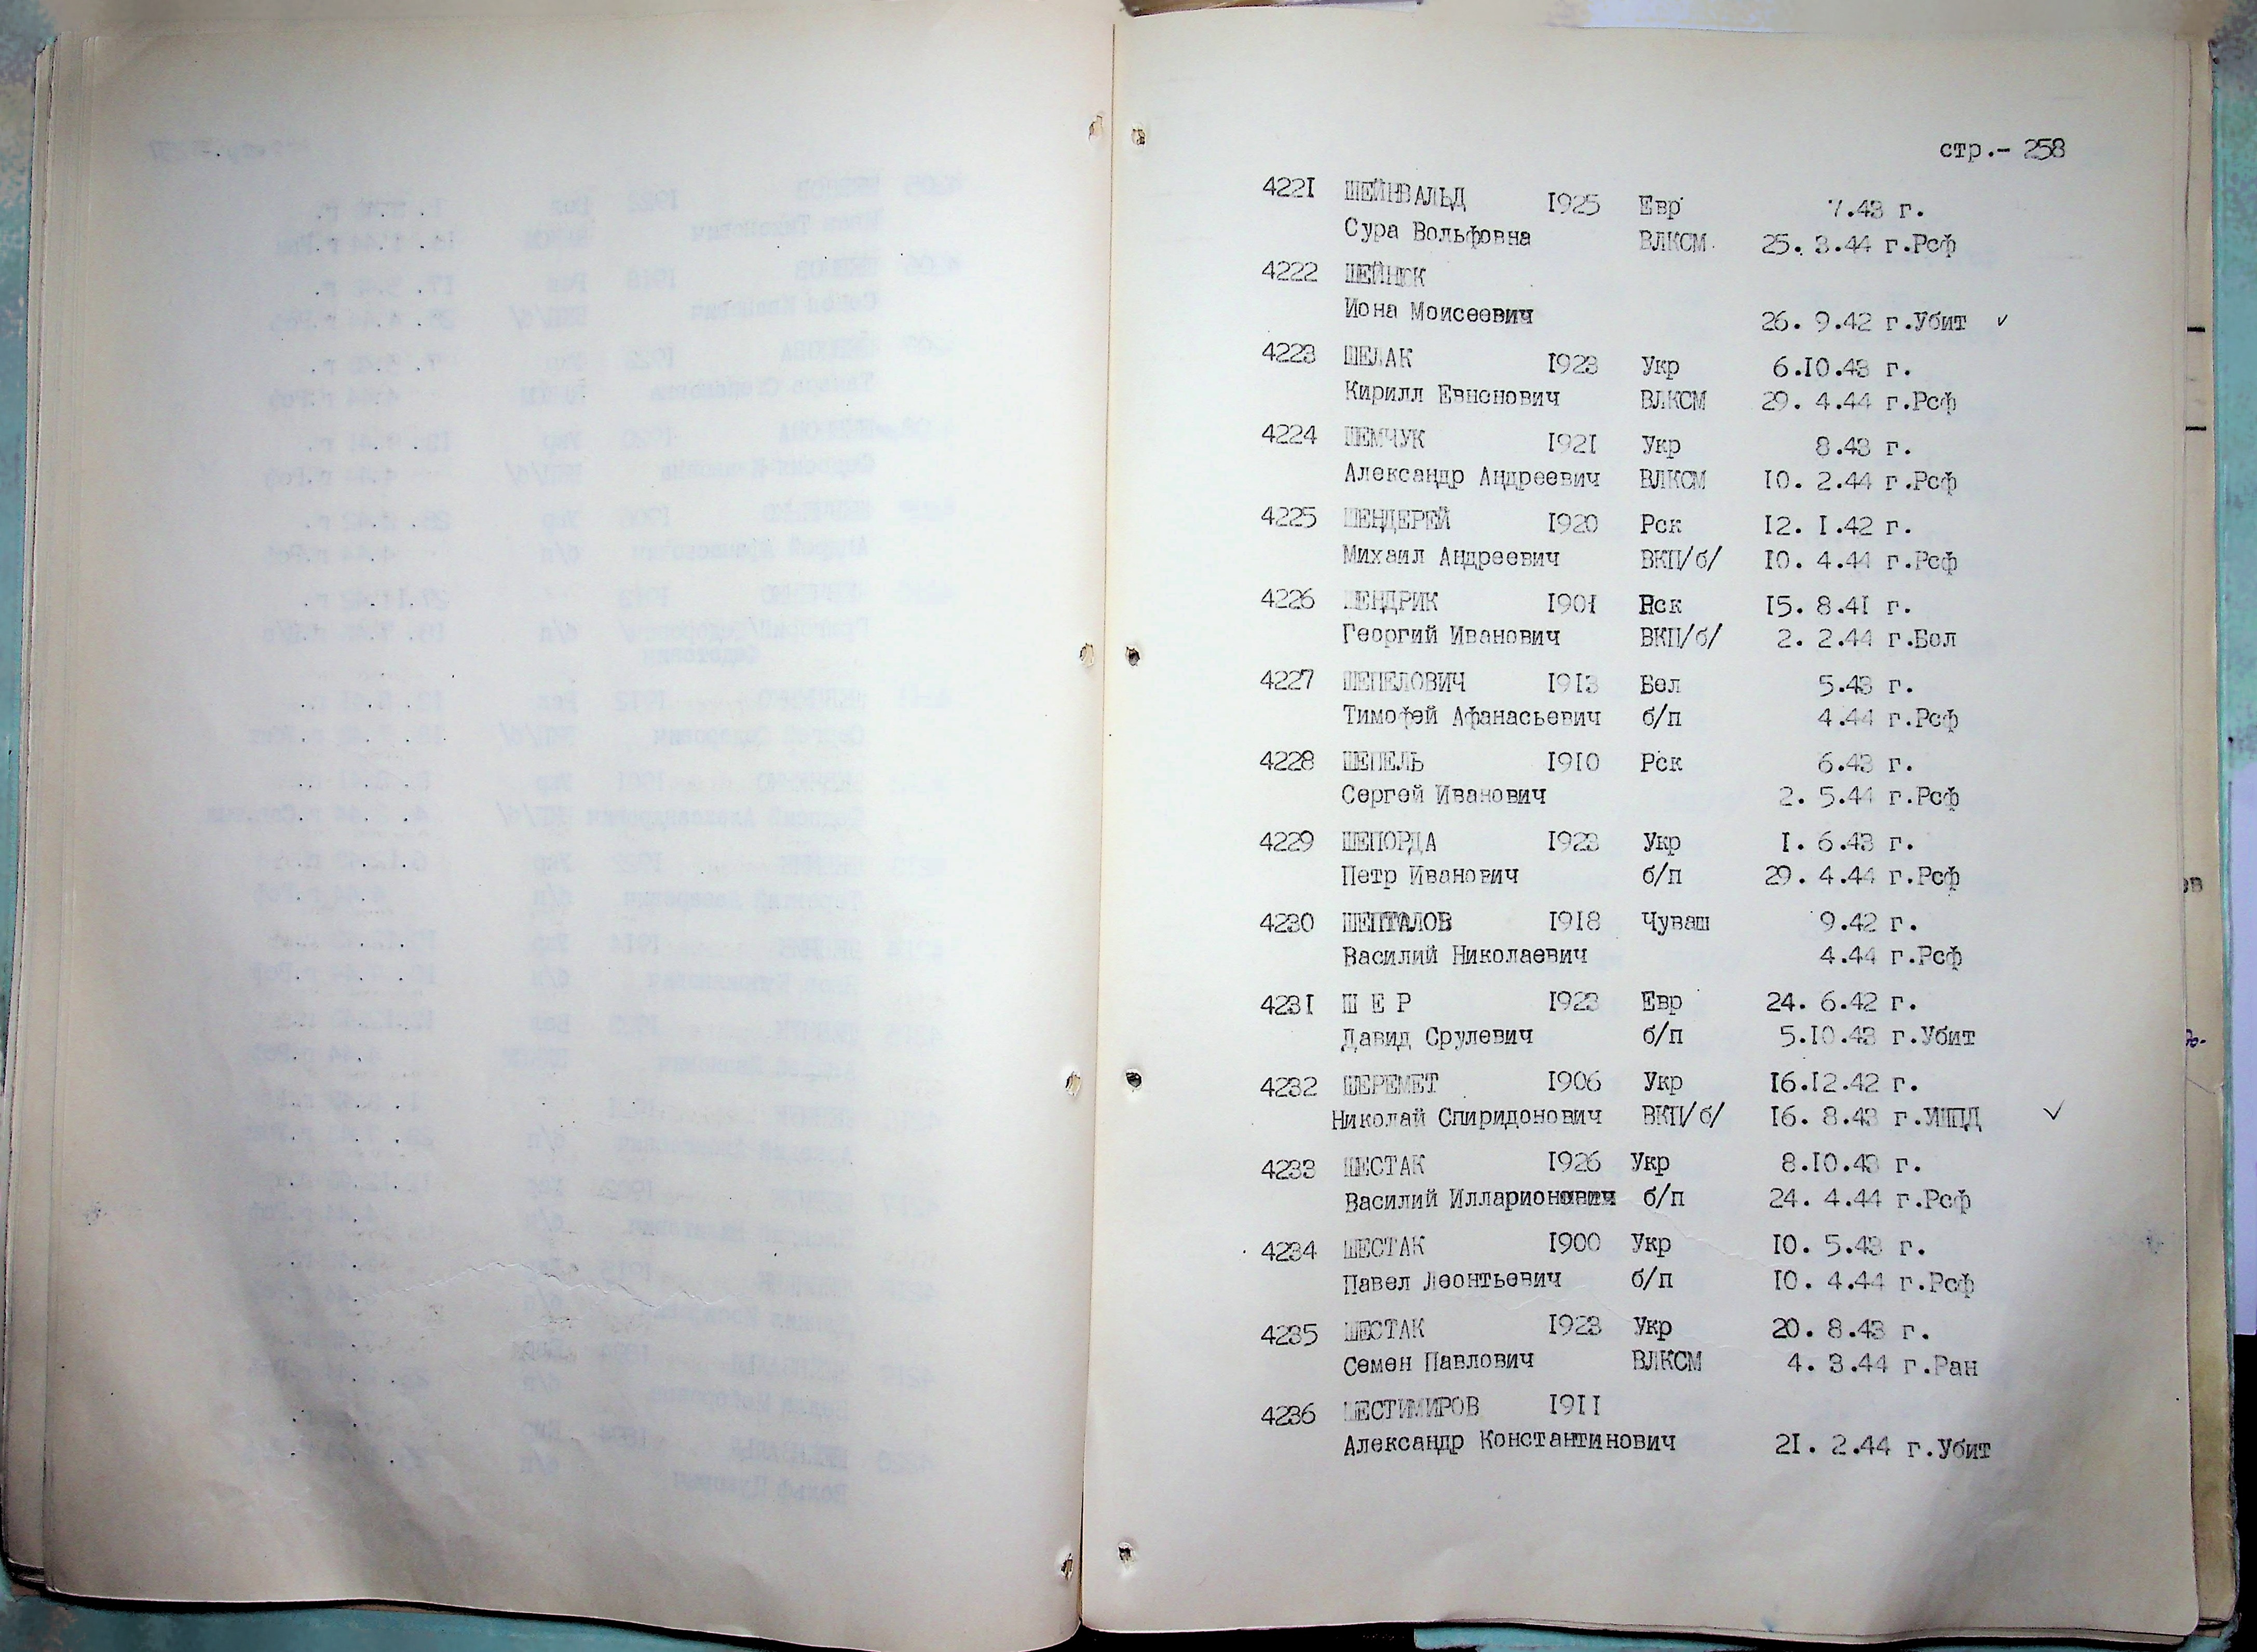 стр.- 258
4221 ШЕЙНВАЛЬД 1925 Евр 7.43 г.
Сура Вольфовна ВЛКСМ 25. 3.44 г.Рсф
4222 ШЕЙНЮК
Иона Моисеевич 26. 9.42 г.Убит ✓
4223 ШЕЛАК 1923 Укр 6.10.43 г.
Кирилл Евненович ВЛКСМ 29. 4.44 г.Рсф
4224 ШЕМЧУК 1921 Укр 8.43 г.
Александр Андреевич ВЛКСМ 10. 2.44 г.Рсф
4225 ШЕНДЕРЕЙ 1920 Рск 12. 1.42 г.
Михаил Андреевич ВКП/б/ 10. 4.44 г.Рсф
4226 ШЕНДРИК 1901 Рск 15. 8.41 г.
Георгий Иванович ВКП/б/ 2. 2.44 г.Бол
4227 ШЕПЕЛОВИЧ 1913 Бел 5.43 г.
Тимофей Афанасьевич б/п 4.44 г.Рсф
4228 ШЕПЕЛЬ 1910 Рск 6.43 г.
Сергей Иванович 2. 5.44 г.Рсф
4229 ШЕПОРДА 1923 Укр 1. 6.43 г.
Петр Иванович б/п 29. 4.44 г.Рсф
4230 ШЕПТАЛОВ 1918 Чуваш 9.42 г.
Василий Николаевич 4.44 г.Рсф
4231 Ш Е Р 1923 Евр 24. 6.42 г.
Давид Срулевич б/п 5.10.43 г.Убит
4232 ШЕРЕМЕТ 1906 Укр 16.12.42 г.
Николай Спиридонович ВКП/б/ 16. 8.43 г.УШПД ✓
4233 ШЕСТАК 1926 Укр 8.10.43 г.
Василий Илларионович б/п 24. 4.44 г.Рсф
4234 ШЕСТАК 1900 Укр 10. 5.43 г.
Павел Леонтьевич б/п 10. 4.44 г.Рсф
4235 ШЕСТАК 1923 Укр 20. 8.43 г.
Семен Павлович ВЛКСМ 4. 3.44 г.Ран
4236 ШЕСТИМИРОВ 1911
Александр Константинович 21. 2.44 г.Убит